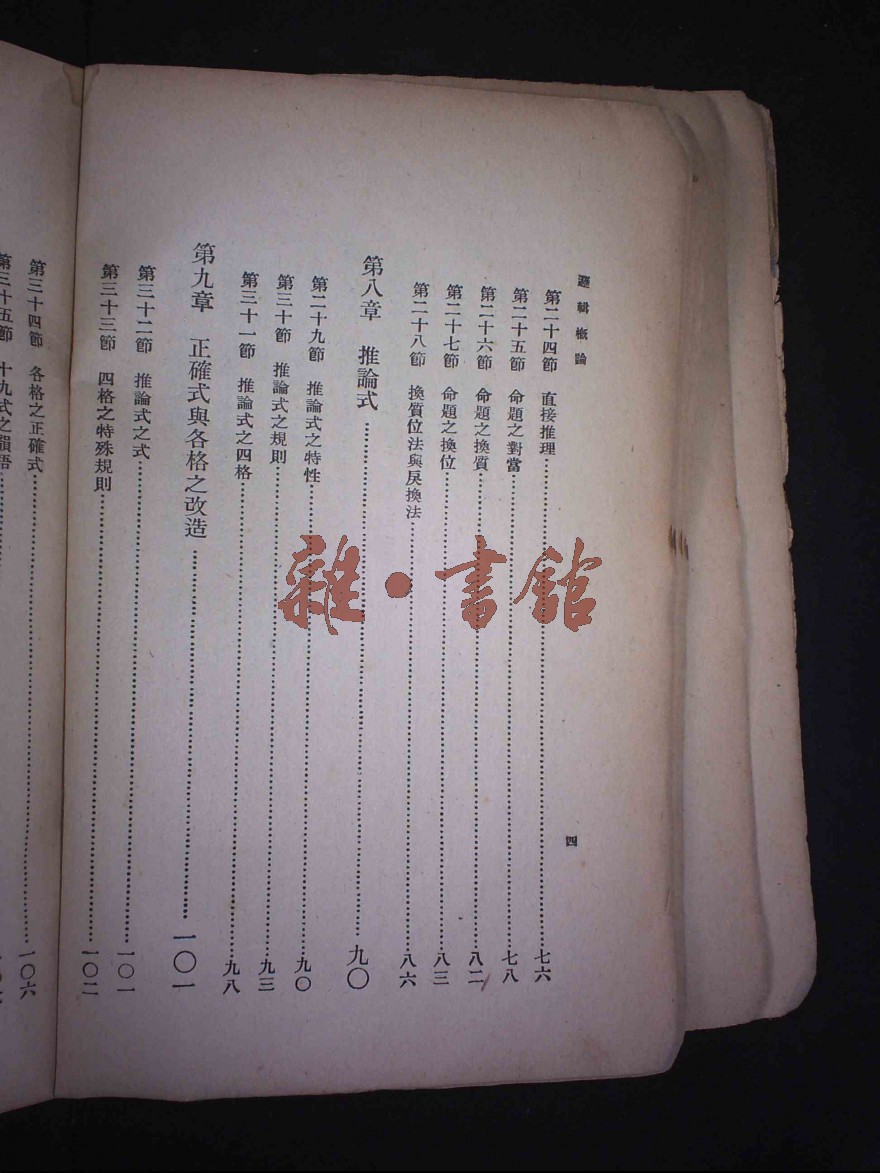 邏輯概論
四
第二十四節 直接推理……七六
第二十五節 命題之對當……七八
第二十六節 命題之換質……八二
第二十七節 命題之換位……八三
第二十八節 換質位法與戾換法……八六
第八章 推論式……九〇
第二十九節 推論式之特性……九〇
第三十節 推論式之規則……九三
第三十一節 推論式之四格……九八
第九章 正確式與各格之改造……一〇一
第三十二節 推論式之式……一〇一
第三十三節 四格之特殊規則……一〇二
第三十四節 各格之正確式……一〇六
第三十五節 十九式之韻語……
雜·書館